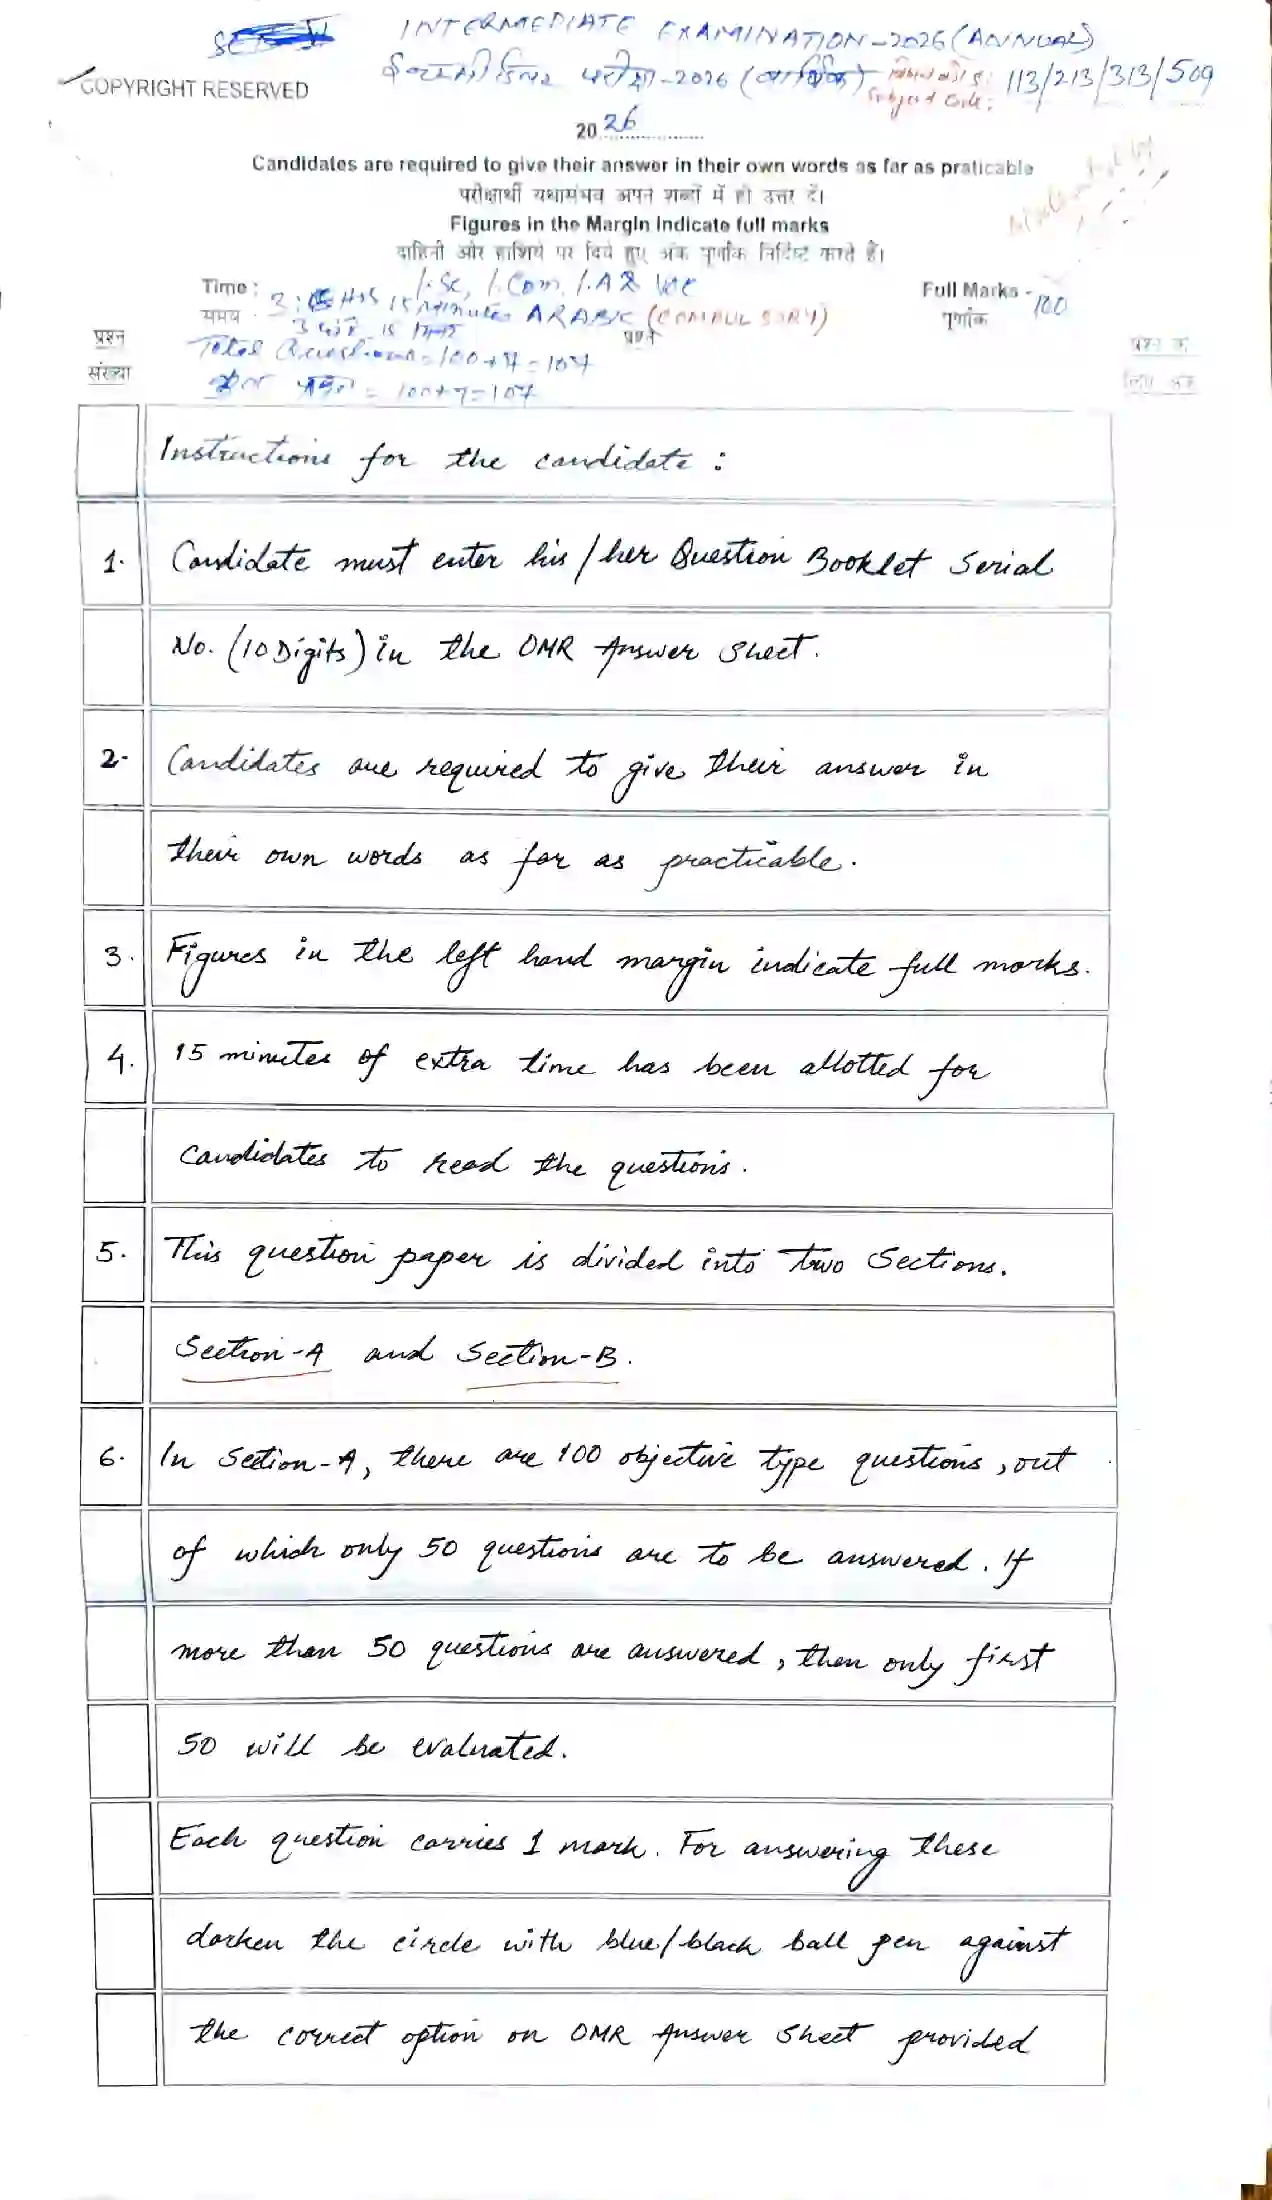 INTERMEDIATE EXAMINATION-2026 (ANNUAL)
इन्टरमीडिएट परीक्षा-2026 (वार्षिक) विषय कोड: 113/213/313/509
Subject Code:
COPYRIGHT RESERVED
2026
Candidates are required to give their answer in their own words as far as praticable
परीक्षार्थी यथासंभव अपने शब्दों में ही उत्तर दें।
Figures in the Margin Indicate full marks
दाहिनी ओर हाशिये पर दिये हुए अंक पूर्णांक निर्दिष्ट करते हैं।
Time : I.Sc, I.Com, I.A & Voc Full Marks - 100
समय : 3 Hrs 15 Minutes ARABIC (COMPULSORY) पूर्णांक
3 घंटे 15 मिनट
प्रश्न संख्या
प्रश्न
प्रश्न के लिए अंक
Total Questions = 100+7=107
कुल प्रश्न = 100+7=107
Instructions for the candidate :
1. Candidate must enter his/her Question Booklet Serial
No. (10 Digits) in the OMR Answer Sheet.
2. Candidates are required to give their answer in
their own words as far as practicable.
3. Figures in the left hand margin indicate full marks.
4. 15 minutes of extra time has been allotted for
candidates to read the questions.
5. This question paper is divided into two Sections.
Section-A and Section-B.
6. In Section-A, there are 100 objective type questions, out
of which only 50 questions are to be answered. If
more than 50 questions are answered, then only first
50 will be evaluated.
Each question carries 1 mark. For answering these
darken the circle with blue/black ball pen against
the correct option on OMR Answer Sheet provided